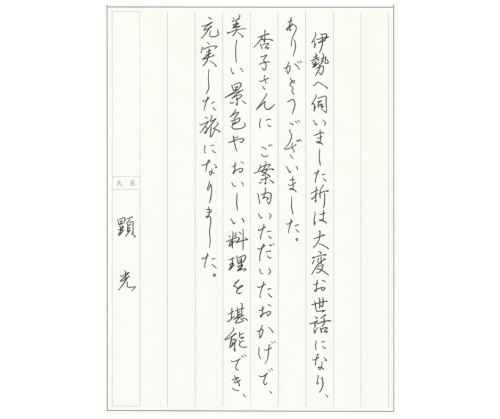 伊勢へ伺いました折は大変お世話になり、
ありがとうございました。
杏子さんにご案内いただいたおかげで、
美しい景色やおいしい料理を堪能でき、
充実した旅になりました。
氏名
顕光